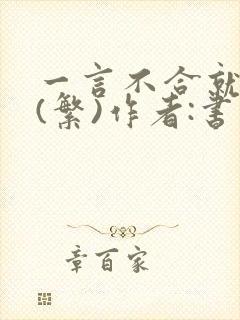 一言不合就
(繁)作者:書
章百家